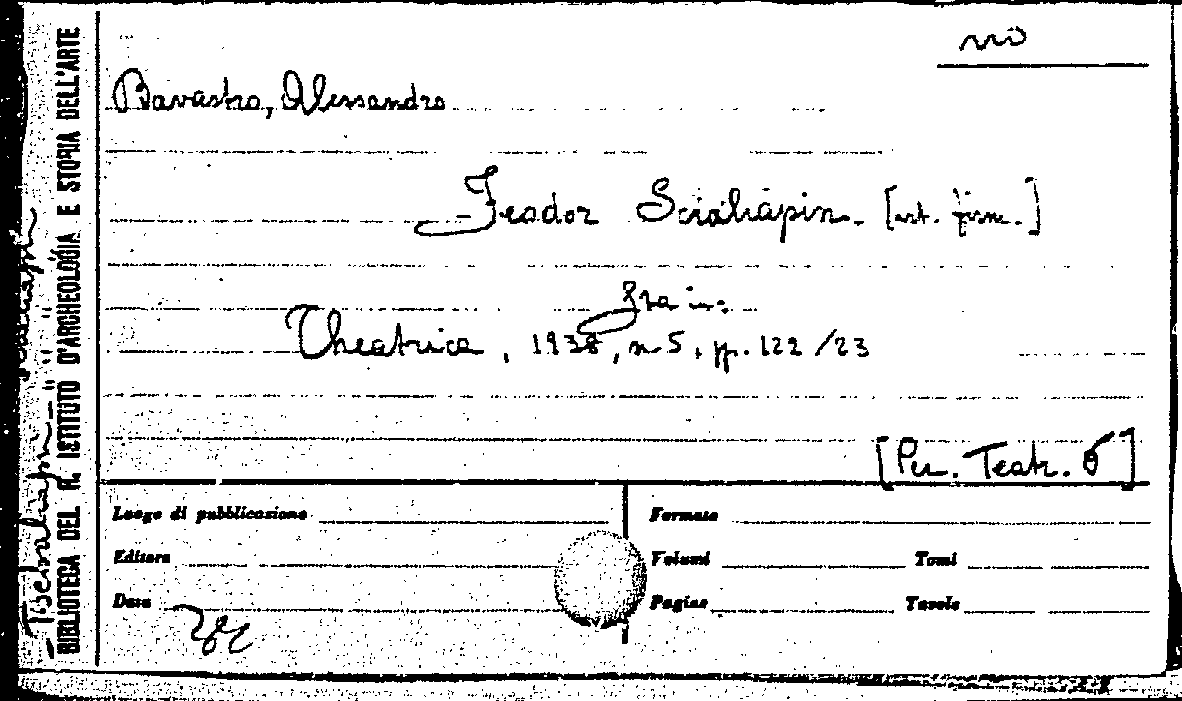 no
Bavastro, Alessandro
Feodor Scialiapin. [art. firm.]
Fra in:
Theatrica, 1938, n. 5, pp. 122/23
[Per. Teatr. 6]
Luogo di pubblicazione
Formato
Editore
Volumi Tomi
Data
Pagine Tavole
BIBLIOTECA DEL R. ISTITUTO D'ARCHEOLOGIA E STORIA DELL'ARTE